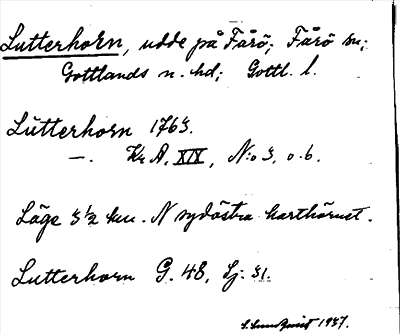 Lutterhorn, udde på Fårö; Fårö sn;
Gottlands n. hd; Gottl. l.
Lütterhorn 1763.
—. Kr A, XIX, N:o 3, o. 6.
Läge 3 1/2 km. N sydöstra karthörnet.
Lutterhorn G. 48, Sj. 31.
S. Sundquist 1937.